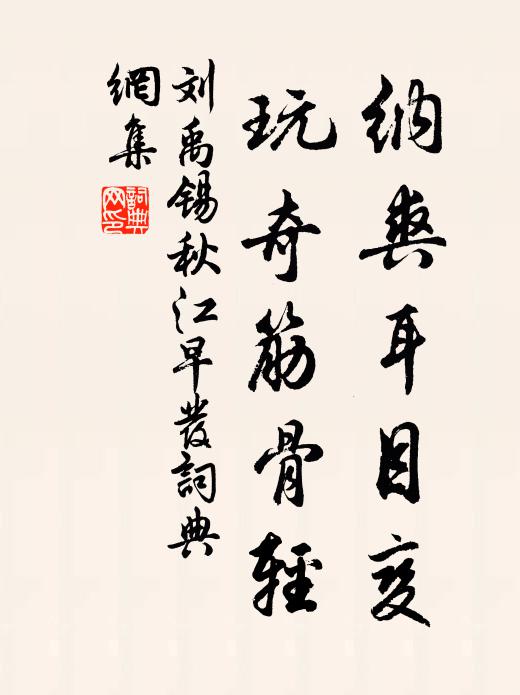 纳爽耳目变
玩奇筋骨轻
刘禹锡秋江早发詞典
網集
詞典
网印